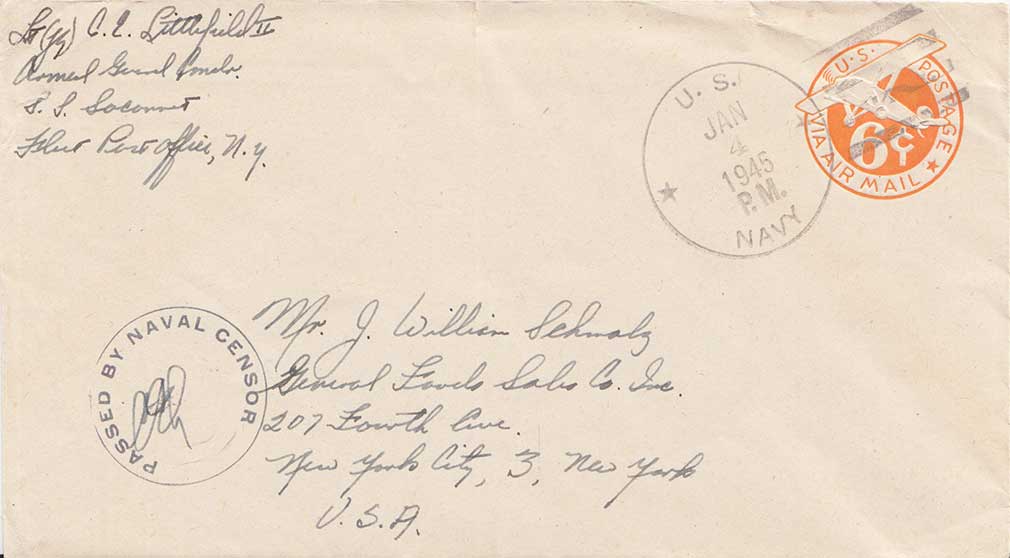 Lt (jg) C. E. Littlefield II
Armed Guard Comdr.
S. S. Soconnet
Fleet Post Office, N.Y.
U. S.
JAN
4
1945
P.M.
NAVY
U.S. POSTAGE
VIA AIR MAIL
6¢
PASSED BY NAVAL CENSOR
Mr. J. William Schmalz
General Foods Sales Co. Inc.
207 Fourth Ave.
New York City, 3, New York
U.S.A.